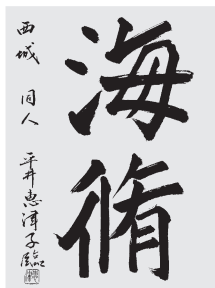 海脩
西城 同人 平井恵津子臨